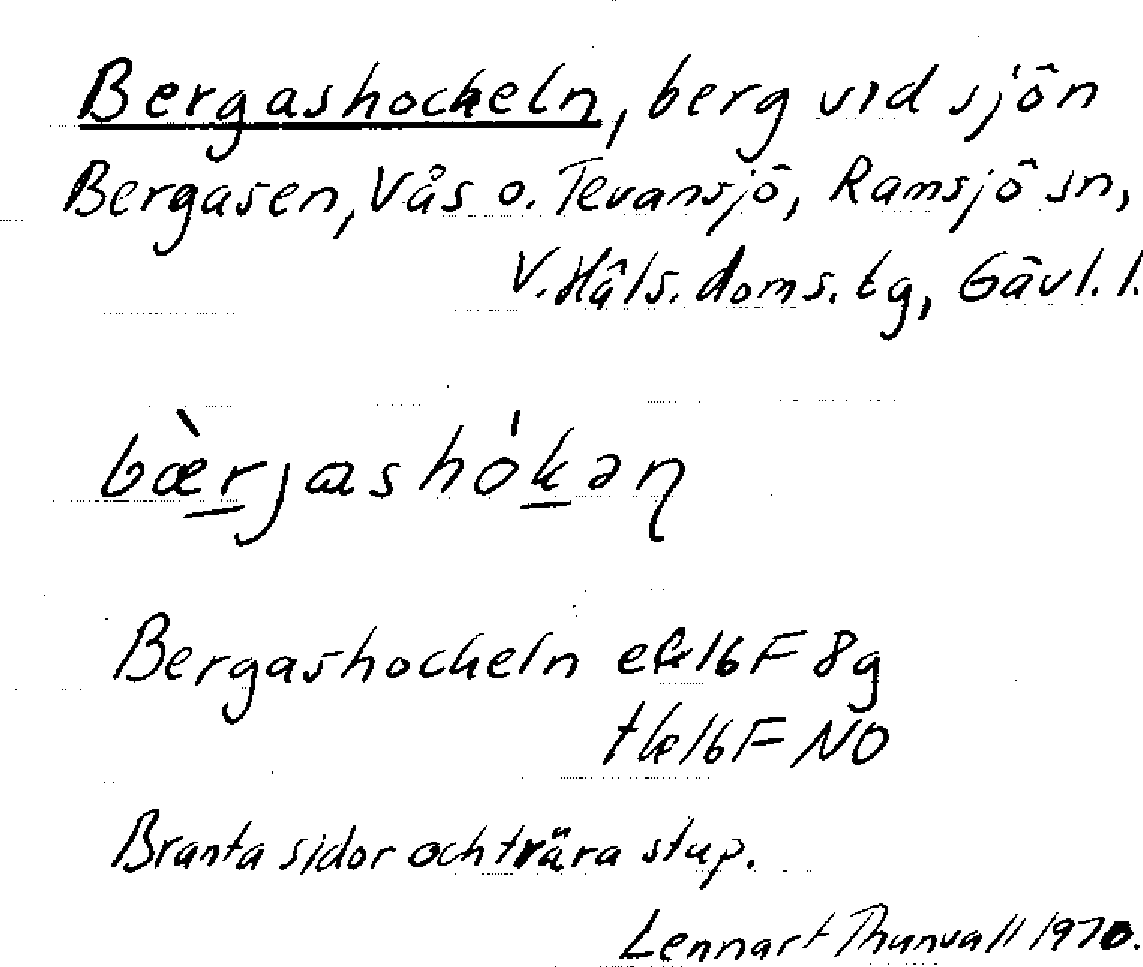 Bergashockeln, berg vid sjön
Bergasen, Vås o. Tevansjö, Ramsjö sn,
V. Häls. doms. tg, Gävl. l.
bæ̀rjashók̠əɳ
Bergashockeln ek 16F 8g
tk 16F NO
Branta sidor och tvära stup.
Lennart Thunvall 1970.